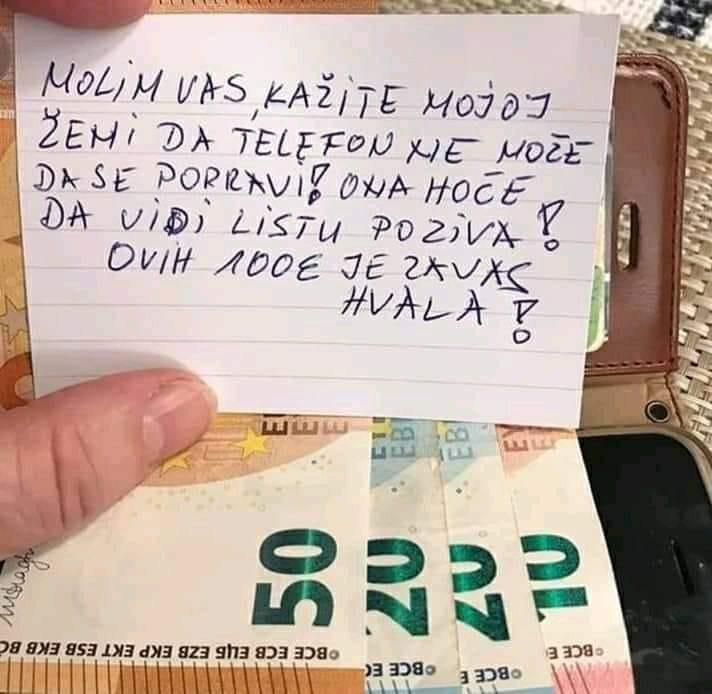 MOLIM VAS, KAŽITE MOJOJ
ŽENI DA TELEFON NE MOŽE
DA SE POPRAVI! ONA HOĆE
DA VIDI LISTU POZIVA!
OVIH 100€ JE ZA VAS
HVALA!
50
20
20
10
©BCE ECB ЕЦБ EZB EKP EKT EKB
©BCE EC
©BCE E
©BCE E